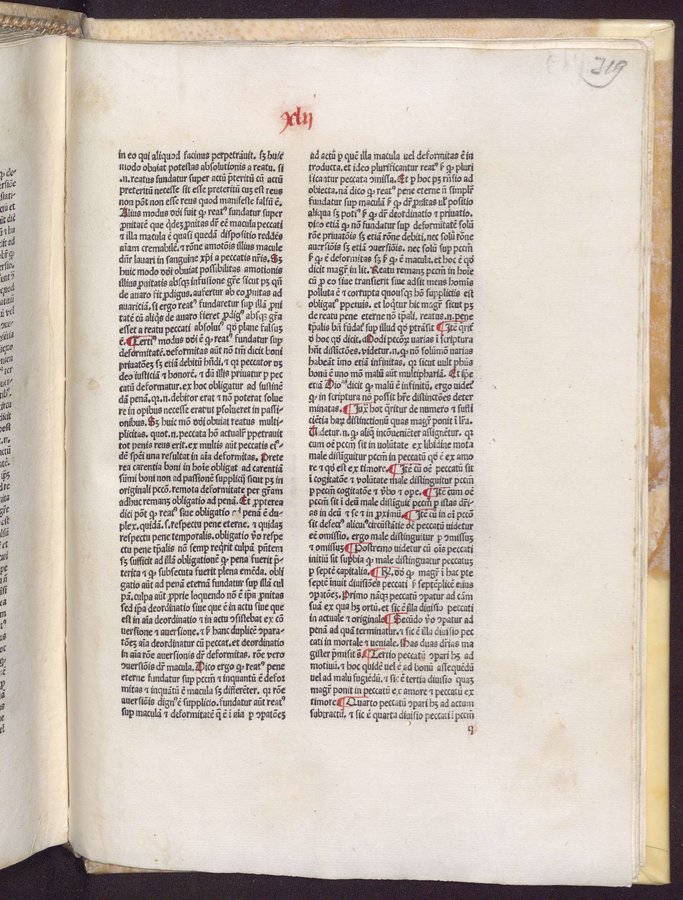 xlij
319
in eo qui aliquod facinus perpetrauit. sꝫ huic
modo obuiat potestas absolutionis a reatu. si
.n. reatus fundatur super actū p̄teritū cū actū
preteritū necesse sit esse preteritū cuꝫ est reus
non pōt non esse reus quod manifeste falsū ē.
Alius modus vōi fuit ꝙ reatꝰ fundatur super
p̄nitatē
⁊ illa macula ē quasi quedā dispositio reddēs
aīam cremabilē. ⁊ rōne amotōis illius macule
dn̄r lauari in sanguine xp̄i a peccatis nr̄is. Sꝫ
huic modo vōi obuiat possibilitas amotionis
illius p̄nitatis absqꝫ infusione gr̄e sicut pꝫ qn̄
de auaro fit ꝓdigus. aufertur ab eo p̄nitas ad
auaritiā. si ergo reatꝰ fundaretur sup illā p̄ni
tatē cū aliqͥs de auaro fieret ꝓdigꝰ absqꝫ gr̄a
esset a reatu peccati absolutꝰ qd̄ plane falsuꝫ
ē. Tertiꝰ modus vōi ē ꝙ reatꝰ fundatur sup
deformitatē. deformitas aūt nō tm̄ dicit boni
priuatōeꝫ sꝫ etiā debitū hn̄di. ⁊ qꝛ peccator dꝫ
deo iusticiā ⁊ honorē. ⁊ dū illis priuatur p pec
catū deformatur. ex hoc obligatur ad sustinē
dā penā. qꝛ .n. debitor erat ⁊ nō poterat solue
re in opibus necesse eratut psolueret in passi-
onibus. Sꝫ huic mō vōi obuiat reatus multi-
plicitas. quot .n. peccata hō actualr̄ ppetrauit
tot penis reus erit. ex multis aūt peccatis eiꝰ-
dē spēi vna resultat in aīa deformitas. Prete
rea carentia boni in hoīe obligat ad carentiā
sūmi boni non ad passionē supplicij sicut pꝫ in
originali pccō. remota deformitate per gr̄am
adhuc remanꝫ obligatio ad penā. Et ꝓpterea
dici pōt ꝙ reatꝰ siue obligatio ad penā ē du-
plex. quidā .s. respectu pene eterne. ⁊ quidaꝫ
respectu pene temporalis. obligatio v̄o respe
ctu pene tp̄alis nō semp reqrit culpā pn̄tem
sꝫ sufficit ad illā obligationē ꝙ pena fuerit p̄-
terita ⁊ ꝙ subsecuta fuerit plena emēda. obli
gatio aūt ad penā eternā fundatur sup illā cul
pā. culpa aūt ꝓprie loquendo nō ē ip̄a p̄nitas
sed ip̄a deordinatio siue que ē in actu siue que
est in aīa deordinatio ⁊ in actu ꝯsistebat ex cō
uersione ⁊ auersione. ⁊ ꝑ hanc duplicē ꝯpara-
tōeꝫ aīa deordinatur cū peccat. et deordinatio
in aīa rōe auersionis dr̄ deformitas. rōe vero
ꝯuersiōis dr̄ macula. Dico ergo ꝙ reatꝰ pene
eterne fundatur sup pccm̄ ⁊ inquantū ē defor
mitas ⁊ inquātū ē macula sꝫ differēter. qꝛ rōe
auersiōis dignꝰ ē supplicio. fundatur aūt reatꝰ
sup maculā ⁊ deformitatē q̄ ē ī aīa p ꝯpatōeꝫ
ad actū p quē illa macula uel deformitas ē in
troducta. et ideo plurificantur reatꝰ ꝙ pluri
ficātur peccata omissa. Et p hoc pꝫ rn̄sio ad
obiecta. nā dico ꝙ reatꝰ pene eterne n̄ simplr̄
fundatur sup maculā ꝙ dr̄ p̄nitas uꝉ positio
aliqua sꝫ potiꝰ ꝙ dr̄ deordinatio ⁊ priuatio.
dico etiā ꝙ nō fundatur sup deformitatē solū
rōne priuatōis sꝫ etiā rōne debiti. nec solū rōne
auersiōis sꝫ etiā ꝯuersiōis. nec solū sup pccm̄
ꝙ ē deformitas sꝫ ꝙ ē macula. et hoc ē qd̄
dicit magr̄ in lr̄a. Reatu remanꝫ pccm̄ in hoīe
cū p eo siue transierit siue adsit meus homīs
polluta ē ⁊ corrupta quousqꝫ hō supplicijs est
obligatꝰ ppetuis. et loqͥtur hic magr̄ sicut pꝫ
de reatu pene eterne nō tp̄alī. reatus .n. pene
tp̄alis bn̄ fūdatꝰ sup illud qd̄ p̄trāsit. Itē qr̄it̄
ꝟ hoc qd̄ dicit. Modi pccōꝝ varias ī scriptura
hn̄t distictōes. videtur .n. ꝙ nō solūmō varias
habeāt imo etiā infinitas. qꝛ sicut vult phūs
bonū ē vno mō malū aūt multiphariā. Et ip̄e
etiā Dioꝰ dicit ꝙ malū ē infinitū. ergo videtˈ
ꝙ in scriptura nō possit hr̄e distinctōes deter
minatas. Iuxͣ hoc qr̄itur de numero ⁊ suffi
ciētia haꝝ distinctionū quas magr̄ ponit ī lr̄a.
Videtur .n. ꝙ aliq̄ incōueniēter assignētur. qꝛ
cum oē pccm̄ sit in volūtate ex libidine mota
male distiguitur pccm̄ in peccatū qd̄ ē ex amo
re ⁊ qd̄ est ex timore. Itē cū oē peccatū sit
ī cogitatōe ⁊ volūtate male distinguitur pccm̄
p pccm̄ cogitatōe ⁊ v̄bo ⁊ ope. Itē cum oē
pccm̄ sit ī deū male distiguīt̄ pccm̄ p istas dr̄i-
as in deū ⁊ se ⁊ in ꝓximū. Itē cū in oī pccō
sit defectꝰ alicuiꝰ circūstātie oē peccatū uidetur
eē omissio. ergo male distinguitur p omissuꝫ
⁊ omissuꝫ. Postremo uidetur cū oīs peccati
initiū sit supbia ꝙ male distinguatur peccatuꝫ
p septē capitalia. Rn. vōi ꝙ magr̄ ī hac pte
septē innuit diuisiōes peccati ꝑ septēplicē eius
ꝯpatōeꝫ. Primo nāqꝫ peccatū ꝯpatur ad cām
suā ex qua hꝫ ortū. et sic ē illa diuisio peccati
in actuale ⁊ originale. Secūdo v̄o ꝯpatur ad
penā ad quā terminatur. ⁊ sic ē illa diuisio pec
cati in mortale ⁊ ueniale. Has duas dr̄ias ma
gister p̄misit. Tertio peccatū ꝯpari hꝫ ad
motiuū. ⁊ hoc quidē uel ē ad bonū assequēdū
uel ad malū fugiēdū. ⁊ sic ē tertia diuisio quaꝫ
magr̄ ponit in peccatū ex amore ⁊ peccatū ex
timore. Quarto peccatū ꝯpari hꝫ ad actum
subtractū. ⁊ sic ē quarta diuisio peccati ī pccm̄
q